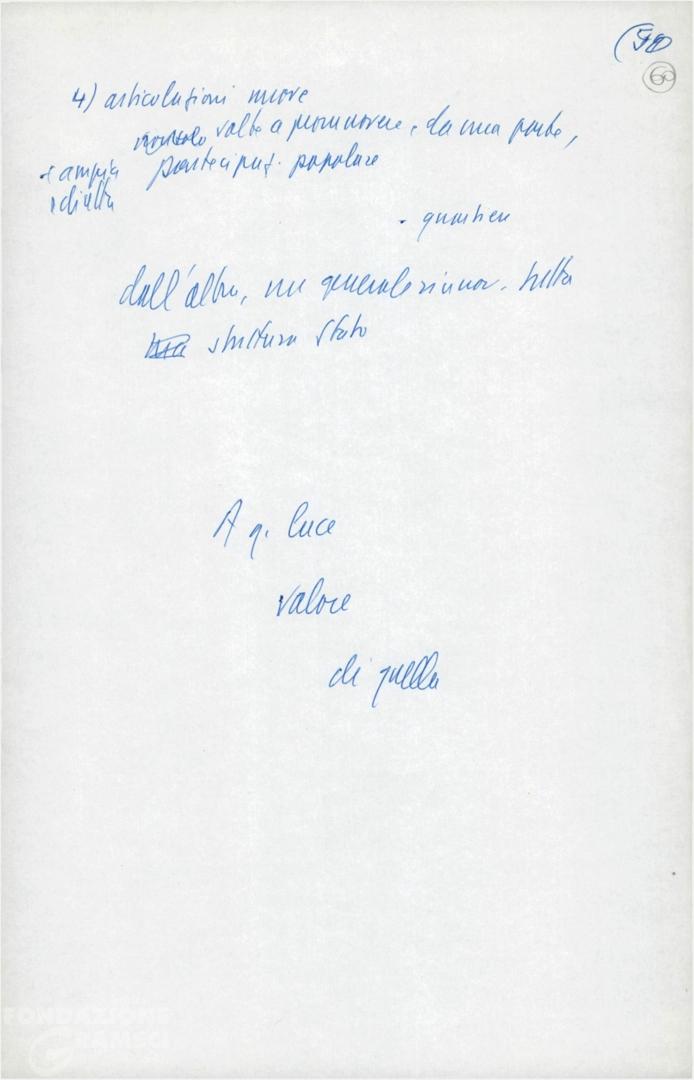 60
4) articolazioni nuove
volte a promuovere, da una parte,
+ ampia partecipaz. popolare
e diretta
- quartieri
dall'altro, un generale rinnov. della
struttura Stato
A q. luce
valore
di quella
FONDAZIONE
GRAMSCI